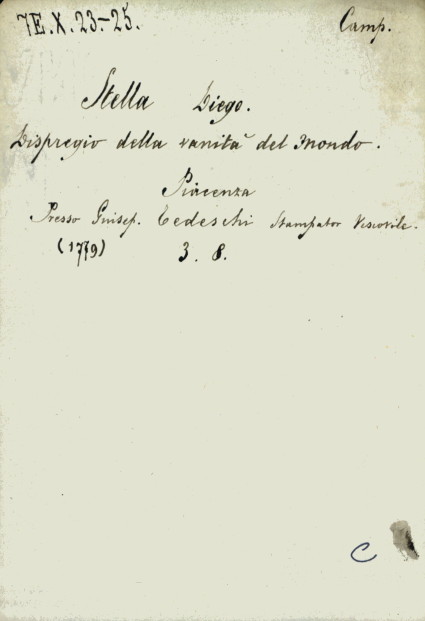 7E.X.23.-25.
Camp.
Stella Diego.
Dispregio della vanità del Mondo.
Piacenza
Presso Guisep. Tedeschi Stampator Vescovile.
(1779)
3. 8.
C